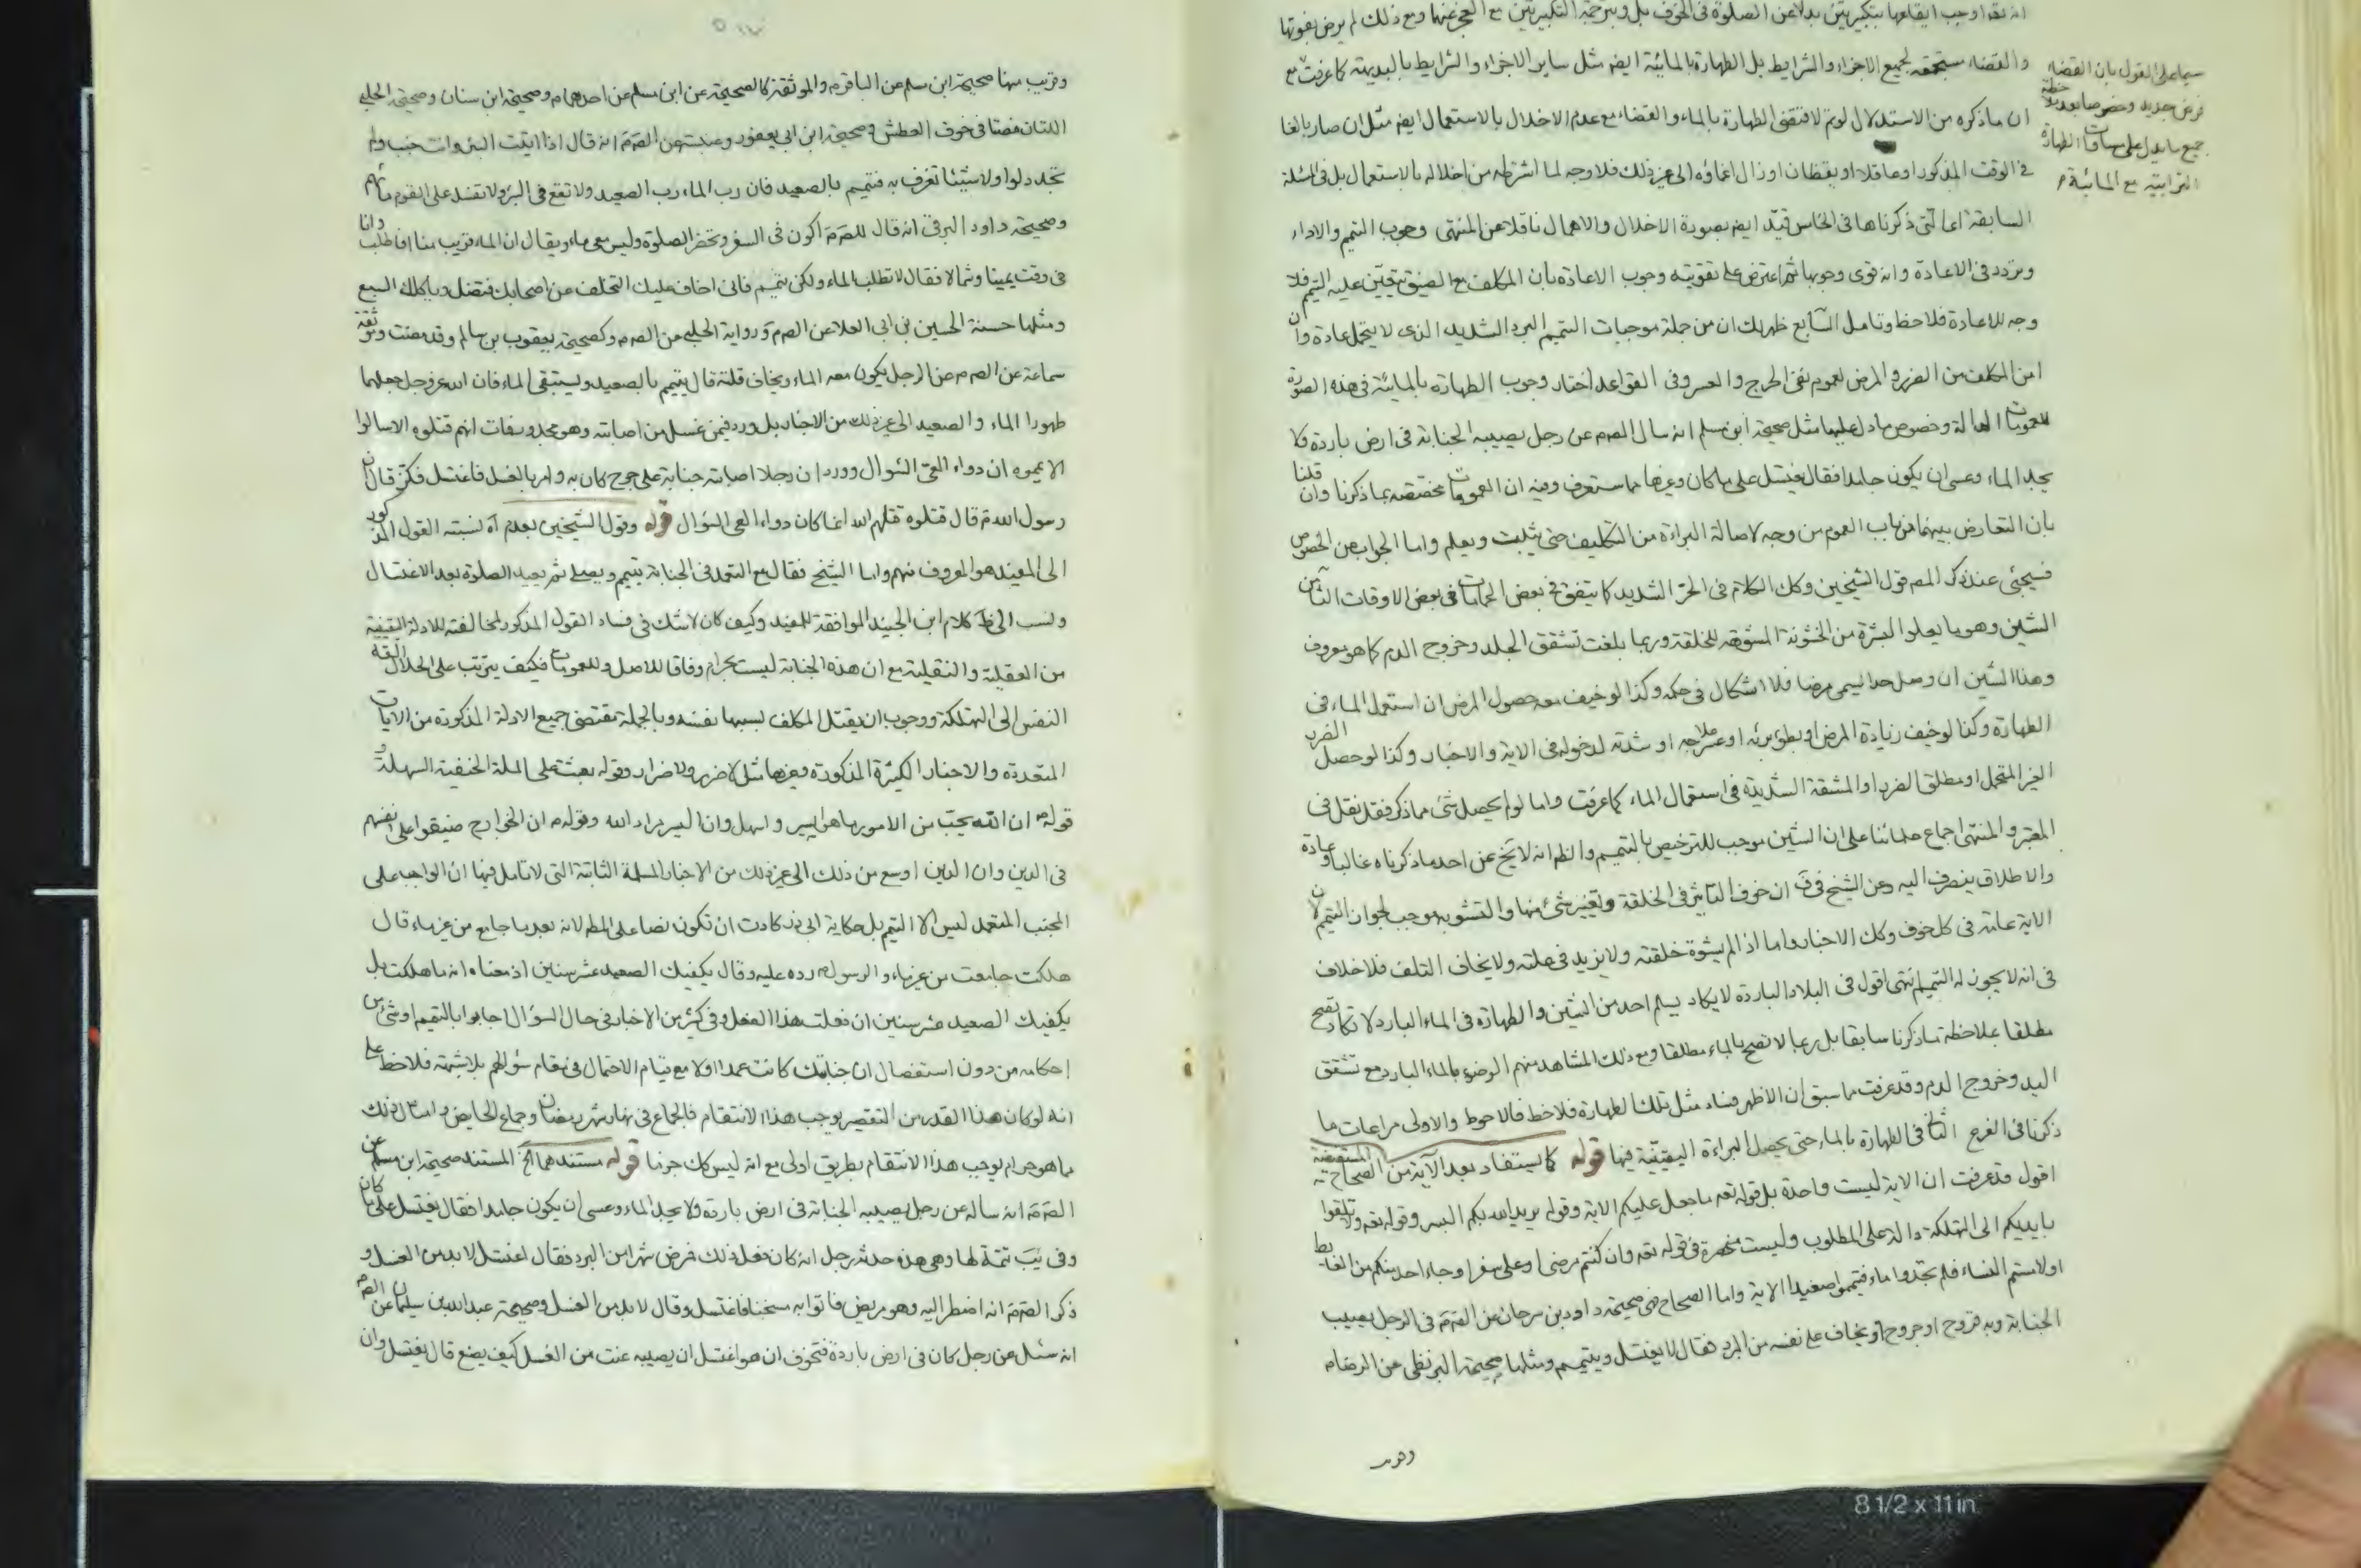 انه تعه اوجب ايقاعها بتكبيرتين بدلا عن الصلوة فى الخوف بل وبترجمة التكبيرتين مع العجز عنها ومع ذلك لم يرض بفوتها
والقضاء مستجمعه لجميع الاجزاء والشرايط بل الطهارة بالمائية ايضه مثل ساير الاجزاء والشرايط بالبديهة كما عرفت مع
ان ما ذكره من الاستدلال لو تم لاقتضى الطهارة بالماء والقضاء مع عدم الاخلال بالاستعمال ايضه مثل ان صار بالغا
فى الوقت المذكور او عاقلا او يقظان او زال اغماؤه الى غير ذلك فلا وجه لما اشترطه من اخلاله بالاستعمال بل فى المسئلة
السابقة اعنى التى ذكرناها فى الخامس قيد ايضه بصورة الاخلال والاهمال ناقلا عن المنتهى وجوب التيمم والاداء
وتردد فى الاعادة وانه قوى وجوبها ثم اعترض على تقويته وجوب الاعادة بان المكلف مع الضيق يتعين عليه التيمم فلا
وجه للاعادة فلاحظ وتامل السابع ظهر لك ان من جملة موجبات التيمم البرد الشديد الذى لا يتحمل عادة وان
امن المكلف من الضرر والمرض لعموم نفى الحرج والعسر وفى القواعد اختار وجوب الطهارة بالمائية فى هذه الصورة
للعمومات الدالة وخصوص ما دل عليها مثل صحيحة ابن مسلم انه سال الصم عن رجل يصيبه الجنابة فى ارض باردة فلا
يجد الماء وعسى ان يكون جامدا فقال يغتسل على ما كان وغيرها مما ستعرف وفيه ان العمومات مخصصه بما ذكرنا وان قلنا
بان التعارض بينهما من باب العموم من وجه لاصالة البراءة من التكليف حتى يثبت ويعلم واما الجواب عن الخصوص
فسيجئ عند ذكر المصم قول الشيخين وكك الكلام فى الحر الشديد كما يتفق فى بعض الحمامات فى بعض الاوقات الثامن
الشين وهو ما يعلو البشرة من الخشونة المشوهة للخلقة وربما بلغت تشقق الجلد وخروج الدم كما هو معروف
وهذا الشين ان وصل حدا يسمى مرضا فلا اشكال فى حكمه وكذا لو خيف معه حصول المرض ان استعمل الماء فى
الطهارة وكذا لو خيف زيادة المرض او بطؤ برئه او عسر علاجه او شدته لدخوله فى الاية والاخبار وكذا لو حصل الضرر
الغير المتحمل او مطلق الضرر او المشقة الشديدة فى استعمال الماء كما عرفت واما لو لم يحصل شئ مما ذكر فقد نقل فى
المعتبر والمنتهى اجماع علمائنا على ان الشين موجب للترخيص بالتيمم والظ انه لا يخ عن احد ما ذكرناه غالبا وعادة
والاطلاق ينصرف اليه وعن الشيخ فى ف ان خوف التاثير فى الخلقة وتغيير شئ منها والتشويه موجب لجواز التيمم لان
الاية عامة فى كل خوف وكك الاخبار واما اذا لم يشوه خلقته ولا يزيد فى علته ولا يخاف التلف فلا خلاف
فى انه لا يجوز له التيمم انتهى اقول فى البلاد الباردة لا يكاد يسلم احد من الشين والطهارة فى الماء البارد لا تكاد تصح
مطلقا بملاحظة ما ذكرنا سابقا بل ربما لا تصح بالماء مطلقا ومع ذلك المشاهد منهم الوضوء بالماء البارد مع تشقق
اليد وخروج الدم وقد عرفت مما سبق ان الاظهر فساد مثل تلك الطهارة فلاحظ فالاحوط والاولى مراعات ما
ذكرنا فى الفرع الثالث فى الطهارة بالماء حتى يحصل البراءة اليقينية فيها قوله كما يستفاد بعد الاية من الصحاح المستفيضة
اقول قد عرفت ان الاية ليست واحدة بل قوله تعه ما جعل عليكم الاية وقوله يريد الله بكم اليسر وقوله تعه ولا تلقوا
بايديكم الى التهلكة دالة على المطلوب وليست منحصرة فى قوله تعه وان كنتم مرضى او على سفر او جاء احد منكم من الغايط
او لامستم النساء فلم تجدوا ماء فتيمموا صعيدا الاية واما الصحاح فهى صحيحة داود بن سرحان عن الصم فى الرجل يصيب
الجنابة وبه قروح او جروح او يخاف على نفسه من البرد فقال لا يغتسل ويتيمم ومثلها صحيحة البزنطى عن الرضام
سيما على القول بان القضاء
فرض جديد وخصوصا بعد ملاحظة
جميع ما يدل على مساوات الطهارة
الترابية مع المائية م
وقريب منها صحيحة ابن مسلم عن الباقر م والموثقة كالصحيحة عن ابن مسلم عن احدهمام وصحيحة ابن سنان وصحيحة الحلبى
اللتان مضتا فى خوف العطش وصحيحة ابن ابى يعفور وعنبسة عن الصم انه قال اذا اتيت البئر وانت جنب ولم
تجد دلوا ولا شيئا تغرف به فتيمم بالصعيد فان رب الماء رب الصعيد ولا تقع فى البئر ولا تفسد على القوم ماءهم
وصحيحة داود البرقى انه قال للصم اكون فى السفر وتحضر الصلوة وليس معى ماء ويقال ان الماء قريب منا افاطلب وانا
فى وقت يمينا وشمالا فقال لا تطلب الماء ولكن تيمم فانى اخاف عليك التخلف عن اصحابك فتضل وياكلك السبع
ومثلها حسنة الحسين بن ابى العلا عن الصم ورواية الحلبى عن الصم وكصحيحة يعقوب بن سالم وقد مضت وموثقة
سماعة عن الصم عن الرجل يكون معه الماء ويخاف قلته قال يتيمم بالصعيد ويستبقى الماء فان الله عز وجل جعلهما
طهورا الماء والصعيد الى غير ذلك من الاخبار بل ورد فيمن غسل من اصابته وهو مجدور فمات انهم قتلوه الا سالوا
الا يمموه ان دواء العى السؤال وورد ان رجلا اصابته جنابة على جرح كان به وامر بالغسل فاغتسل فكز قال ان
رسول الله م قال قتلوه قتلهم الله انما كان دواء العى السؤال قوله وقول الشيخين بعدم اه نسبته القول المذكور
الى المفيد هو المعروف منهم واما الشيخ فقال مع التعمد فى الجنابة يتيمم ويصلى ثم يعيد الصلوة بعد الاغتسال
ونسب الى ظ كلام ابن الجنيد الموافقة للمفيد وكيف كان لا شك فى فساد القول المذكور لمخالفته للادلة اليقينية
من العقلية والنقلية مع ان هذه الجنابة ليست بحرام وفاقا للاصل وللعمومات فكيف يترتب على الحلال القاء
النفس الى التهلكة ووجوب ان يقتل المكلف بسببها نفسه وبالجملة مقتضى جميع الادلة المذكورة من الايات
المتعددة والاخبار الكثيرة المذكورة وغيرها مثل لا ضرر ولا ضرار وقوله بعثت على الملة الحنفية السهلة و
قوله م ان الله يحب من الامور ما هو ايسر واسهل وان اليسر مراد الله وقوله م ان الخوارج ضيقوا على انفسهم
فى الدين وان الدين اوسع من ذلك الى غير ذلك من الاخبار المسلمة الثابتة التى لا تامل فيها ان الواجب على
المجنب المتعمد ليس الا التيمم بل حكاية ابى ذر كادت ان تكون نصا على المط لانه بعد ما جامع من غير ماء قال
هلكت جامعت من غير ماء والرسول م رده عليه وقال يكفيك الصعيد عشر سنين اذ معناه انه ما هلكت بل
يكفيك الصعيد عشر سنين ان فعلت هذا الفعل وفى كثير من الاخبار فى حال السؤال اجابوا بالتيمم او شئ من
احكامه من دون استفصال ان جنابتك كانت عمدا او لا مع قيام الاحتمال فى مقام سؤالهم بلا شبهة فلاحظ على
انه لو كان هذا القدر من التقصير يوجب هذا الانتقام فالجماع فى نهار شهر رمضان وجماع الحايض وامثال ذلك
مما هو حرام يوجب هذا الانتقام بطريق اولى مع انه ليس كك جزما قوله مستندهما الخ المستند صحيحة ابن مسلم عن
الصم انه ساله عن رجل يصيبه الجنابة فى ارض باردة ولا يجد الماء وعسى ان يكون جامدا فقال يغتسل على ما كان
وفى يب تتمة لها وهى هذه حدثه رجل انه كان فعل ذلك فمرض شهرا من البرد فقال اغتسل لا بد من الغسل و
ذكر الصم انه اضطر اليه وهو مريض فاتوا به مسخنا فاغتسل وقال لا بد من الغسل وصحيحة عبد الله بن سليمان عن الصم
انه سئل عن رجل كان فى ارض باردة فتخوف ان هو اغتسل ان يصيبه عنت من الغسل كيف يصنع قال يغتسل وان
8 1/2 x 11 in.